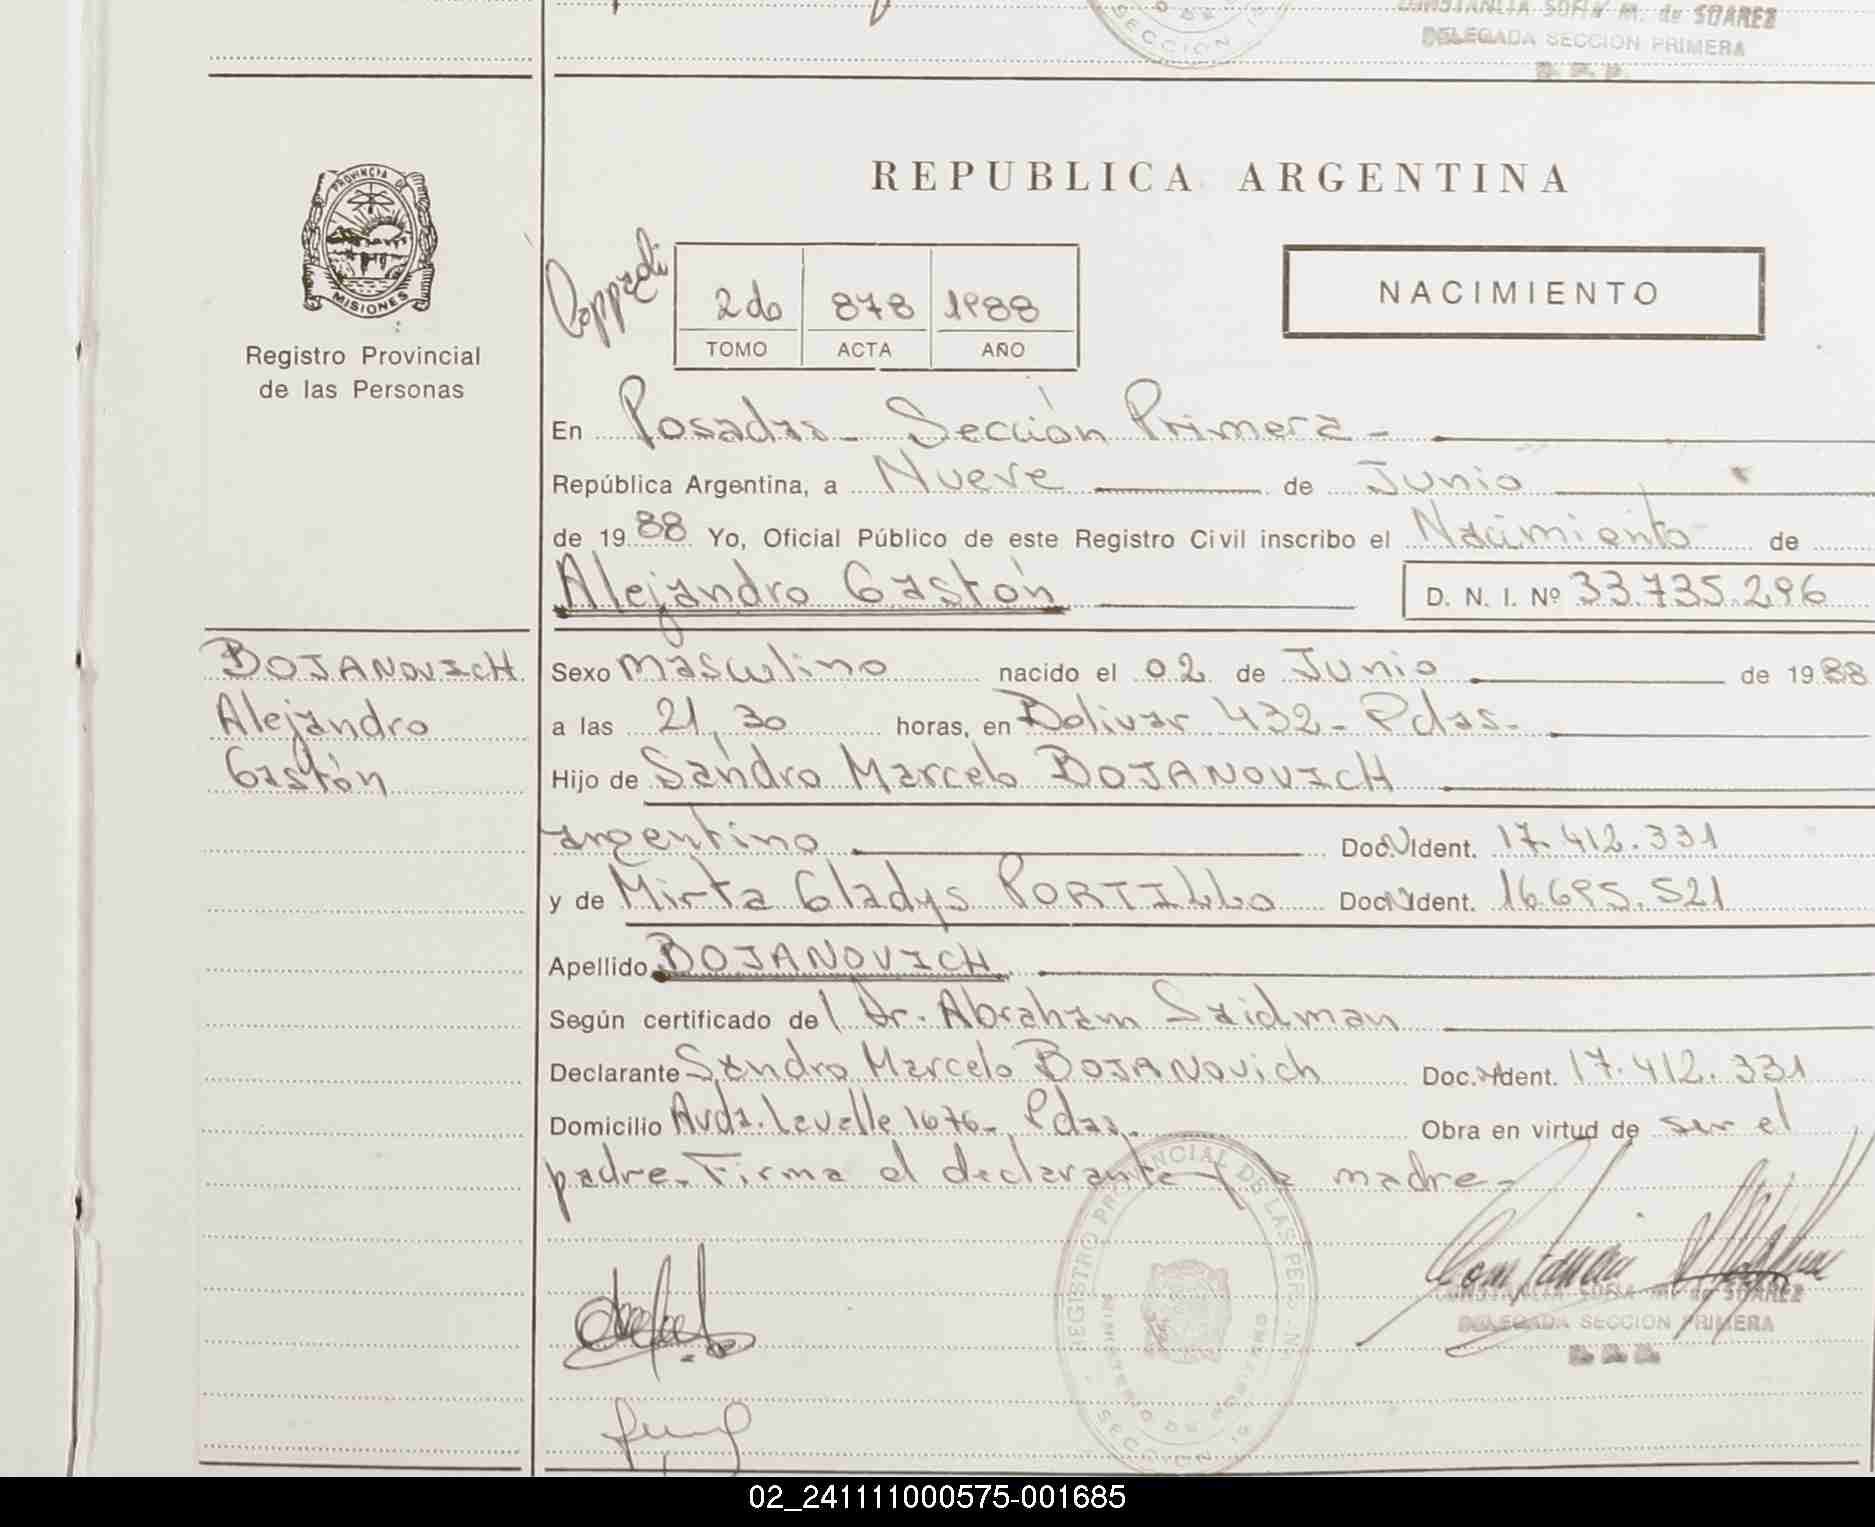 CONSTANCIA SOFIA M. de SUAREZ
DELEGADA SECCION PRIMERA
SECCION
REPUBLICA ARGENTINA
PROVINCIA DE
MISIONES
Registro Provincial
de las Personas
2do 878 1988
TOMO ACTA AÑO
NACIMIENTO
En Posadas - Sección Primera -
República Argentina, a Nueve de Junio
de 1988 Yo, Oficial Público de este Registro Civil inscribo el Nacimiento de
Alejandro Gastón D. N. I. Nº 33.735.296
BOJANOVICH
Alejandro
Gastón
Sexo masculino nacido el 02 de Junio de 1988
a las 21,30 horas, en Bolivar 432 - Pdas -
Hijo de Sandro Marcelo BOJANOVICH
argentino Doc. Ident. 17.412.331
y de Mirta Gladys PORTILLO Doc. Ident. 16.695.521
Apellido BOJANOVICH
Según certificado del Dr. Abraham Saidman
Declarante Sandro Marcelo BOJANOVich Doc. Ident. 17.412.331
Domicilio Avda. Lavalle 1676 - Pdas. Obra en virtud de ser el
padre. Firma el declarante y la madre -
REGISTRO PROVINCIAL DE LAS PERS
MINISTERIO DE GOBIERNO
SECCION 1ª
CONSTANCIA SOFIA M. de SUAREZ
DELEGADA SECCION PRIMERA
02_241111000575-001685